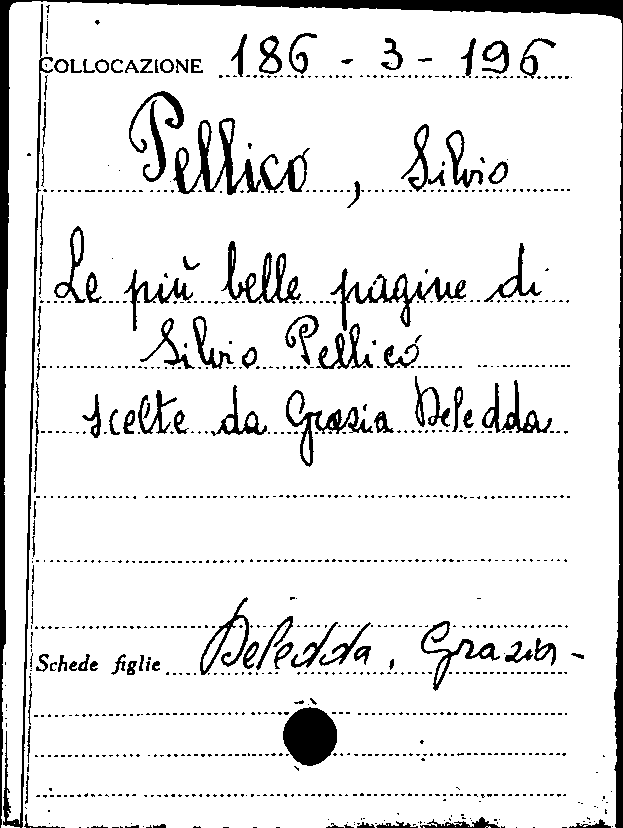 COLLOCAZIONE 186 - 3 - 196
Pellico, Silvio
Le più belle pagine di
Silvio Pellico
scelte da Grazia Deledda
Schede figlie Deledda, Grazia -